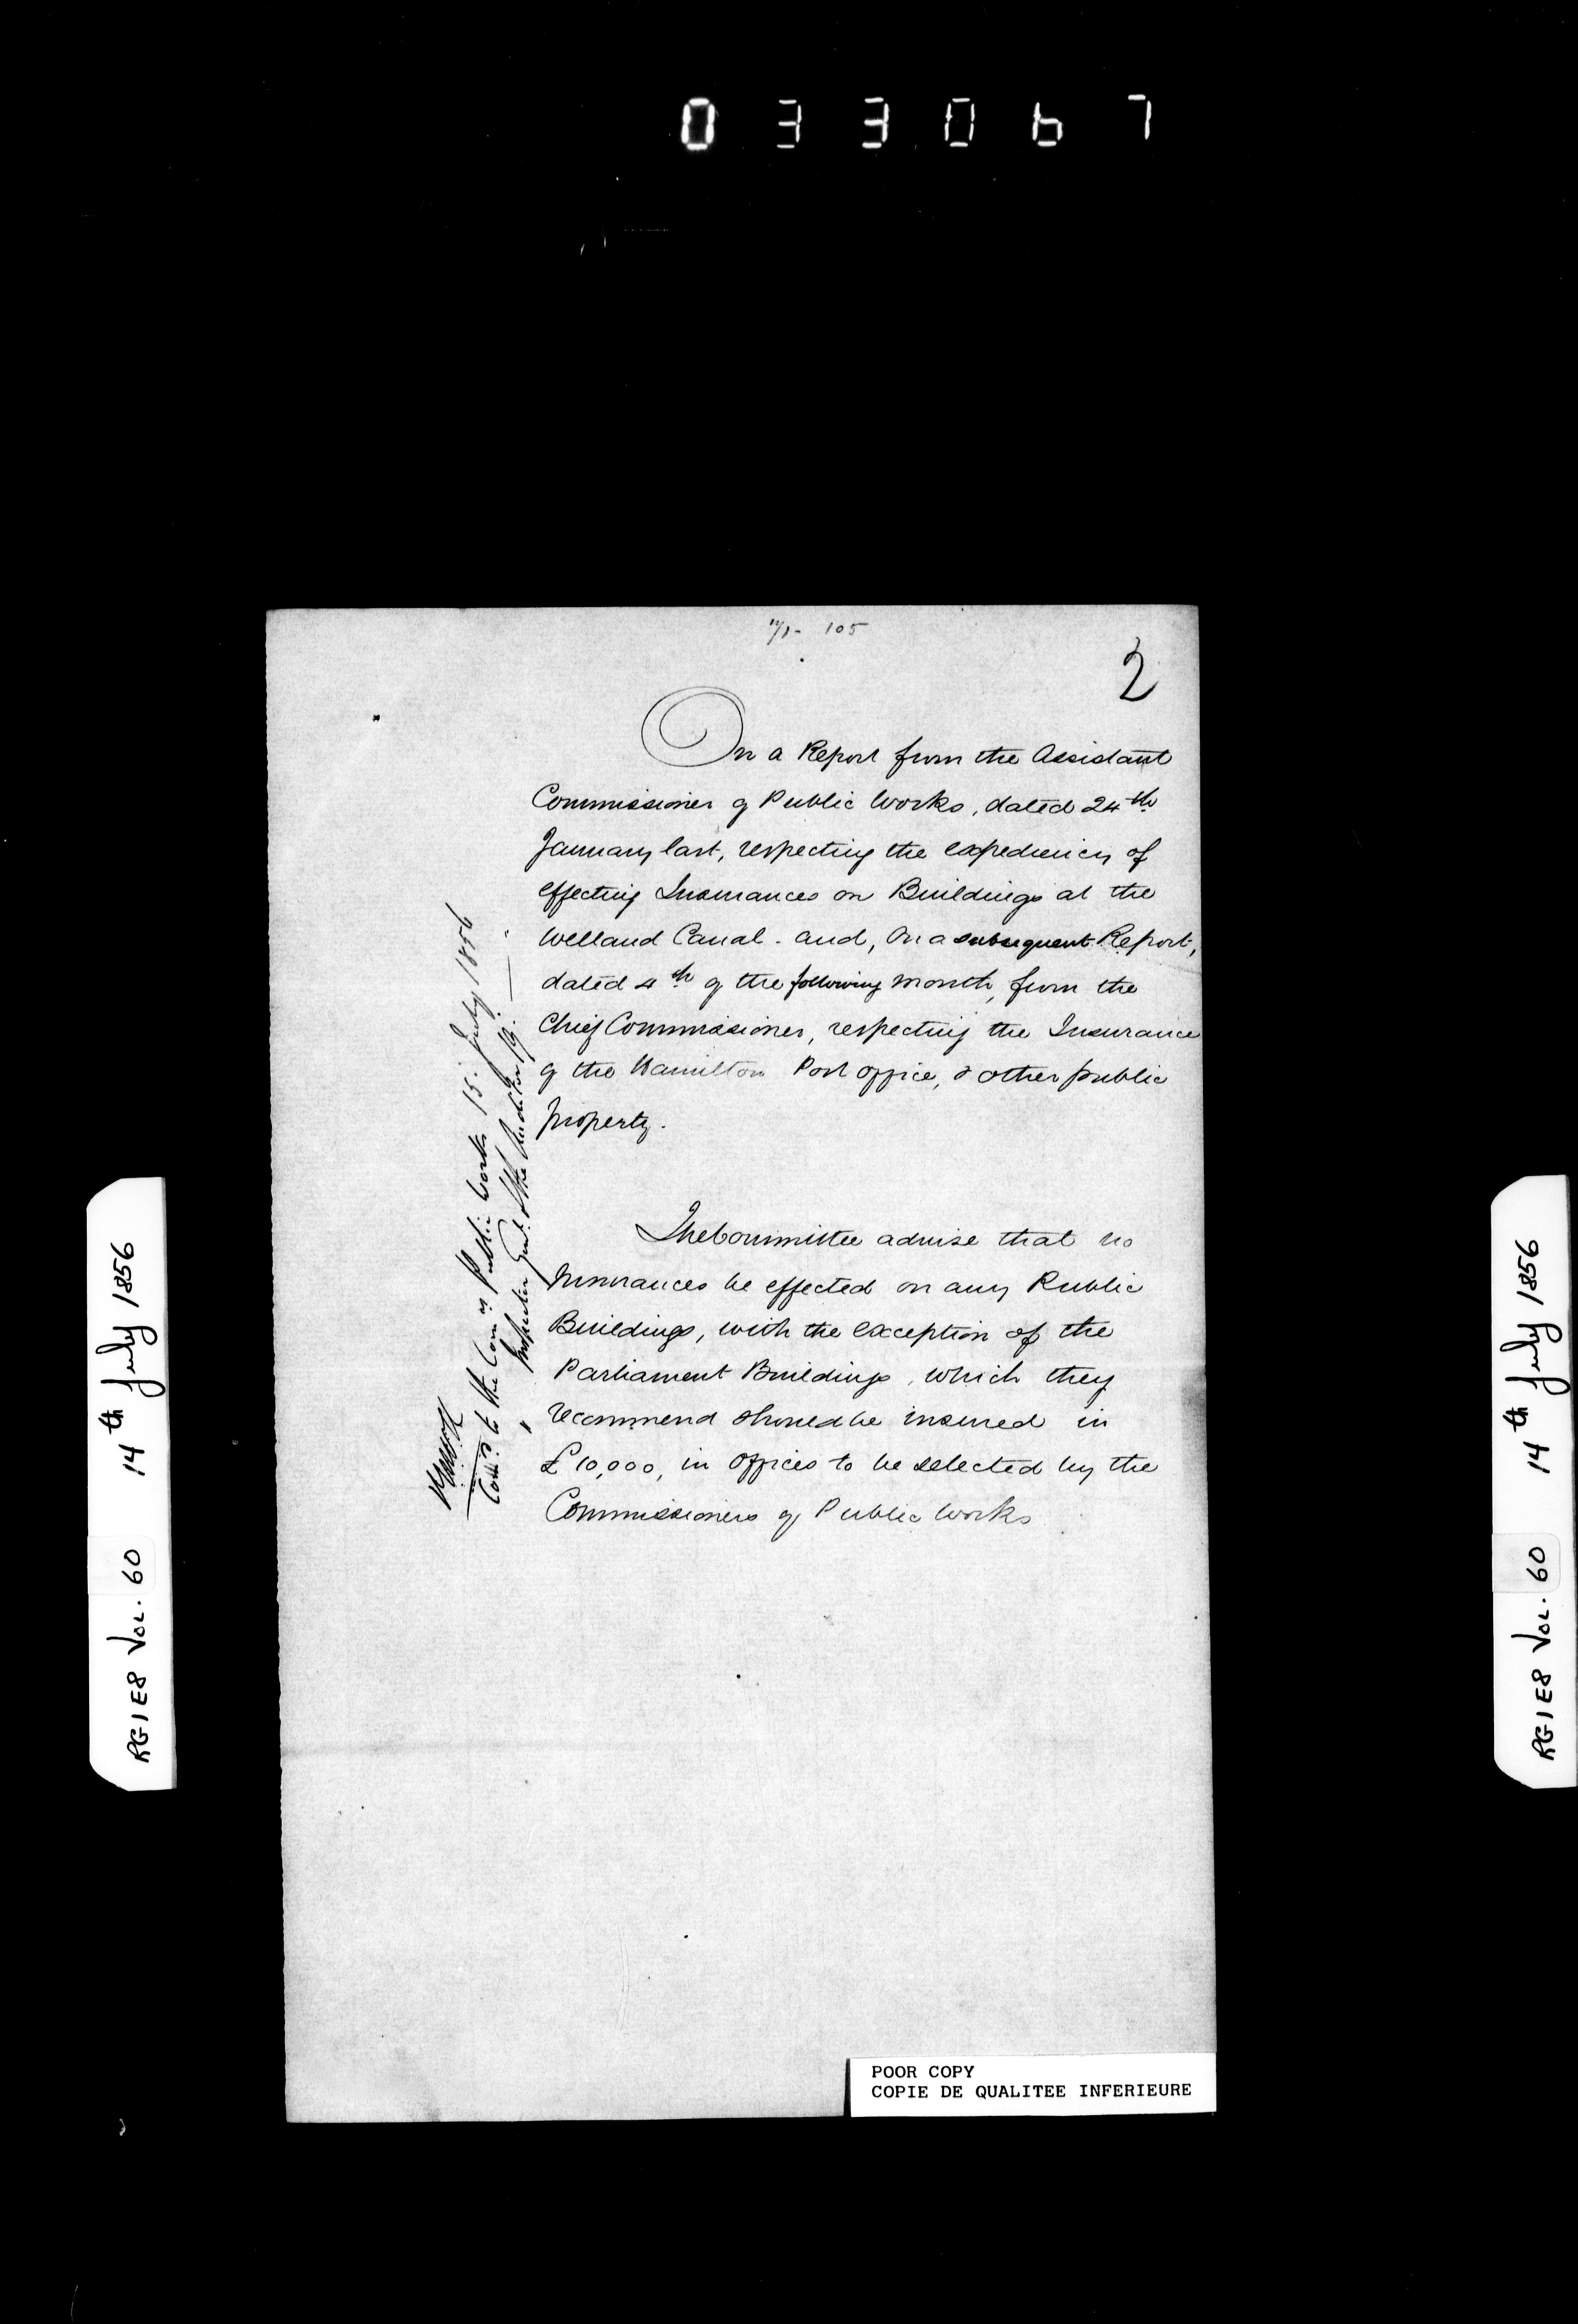 033067
105
2
On a Report from the Assistant
Commissioner of Public Works, dated 24th
January last, respecting the expediency of
effecting Insurances on Buildings at the
Welland Canal - and, On a subsequent Report,
dated 4th of the following month, from the
Chief Commissioner, respecting the Insurance
of the Hamilton Post office, & other public
property.
The Committee advise that no
Insurances be effected on any Public
Buildings, with the exception of the
Parliament Buildings, which they
recommend should be insured in
£10,000, in offices to be selected by the
Commissioners of Public Works
to the Comrs Public Works 15. July 1856
" Inspector Genl. & the Auditor 19. "
RG1E8 Vol. 60 14th July 1856
RG1E8 Vol. 60 14th July 1856
POOR COPY
COPIE DE QUALITEE INFERIEURE